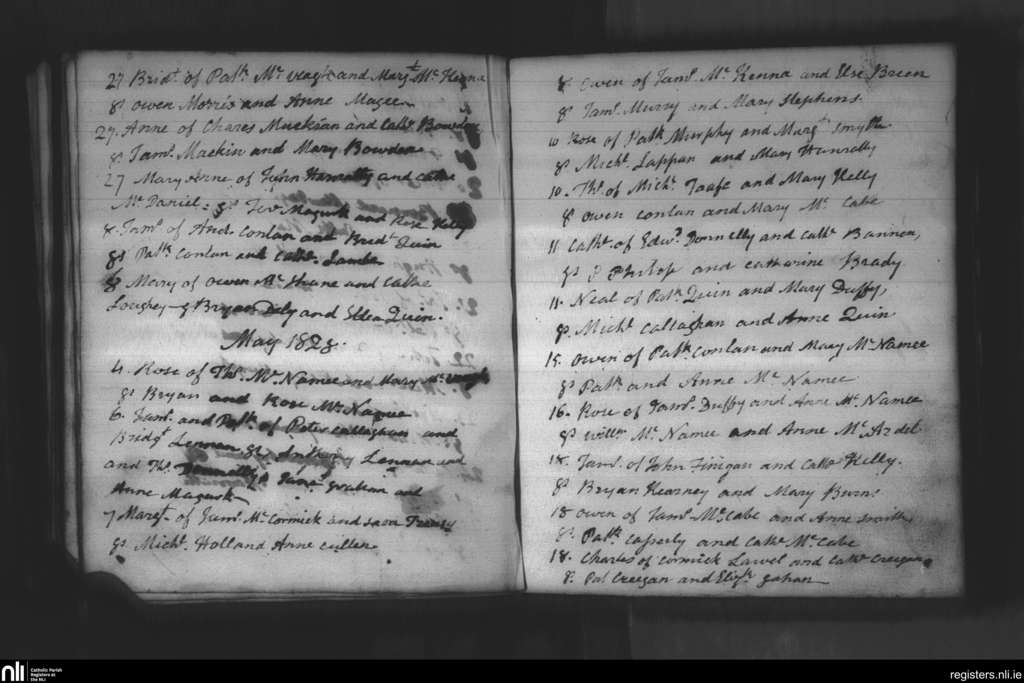 27 Bridt. of Patk. Mc and Margt. Mc Kenna
gs Owen Morris and Anne Magee
27. Anne of Chares Muckian and Cathe. Bowden
gs. Jams. Mackin and Mary Bowden
27 Mary Anne of John Hanratty and Cathe
Mc Daniel: gs and Rose Kelly
8. Jams. of Andw. Conlan and Bridt Quin
gs Patk. Conlan and Cathe. Lambe
8 Marry of Owen Mc Shane and Cathe
Loughey - g Bryan Daly and Ellen Quin.
May 1828.
4. Rose of Ths. Mc. Namee and Mary Mc
gs Bryan and Rose Mc. Namee
6. Jams. and Patk. of Peter Callaghan and
Bridgt Lennon gs. Anthony Lennon and
and Ths. Donnelly & Jams. Graham and
Anne Magurk
7 Margt. of Jams. Mc Cormick and
gs Michl. Holland Anne Cullen
8 Owen of Jams. Mc. Kenna and Else Breen
gs Jams. Murry and Mary Stephens.
10 Rose of Patk Murphy and Margt Smyth
gs Michl. Lappan and Mary Hanratty
10. Ths. of Michl. Taafe and Mary Kelly
gs Owen Conlan and Mary Mc Cabe
11 Cathe. of Edwd. Donnelly and Cathe Bannon,
gs Philip and Catherine Brady
11. Neal of Patk. Quin and Mary Duffy,
gs. Michl. Callaghan and Anne Quin.
15. Owen of Patk Conlan and Mary Mc Namee
gs Patk. and Anne Mc Namee
16. Rose of Jams. Duffy and Anne Mc. Namee
gs Willm Mc. Namee and Anne Mc Ardel
18. Jams. of John Finigan and Cathe Kelly.
gs Bryan Kearney and Mary Burns
18 Owen of Jams. McCabe and Anne Smith,
gs. Patk. Casserly and Cathe. Mc. Cabe
18. Charles of Cormick Lawel and Cathe Creegan
gs. Pat Creegan and Elizth. Gahan
nli
Catholic Parish
Registers at
the NLI
registers.nli.ie